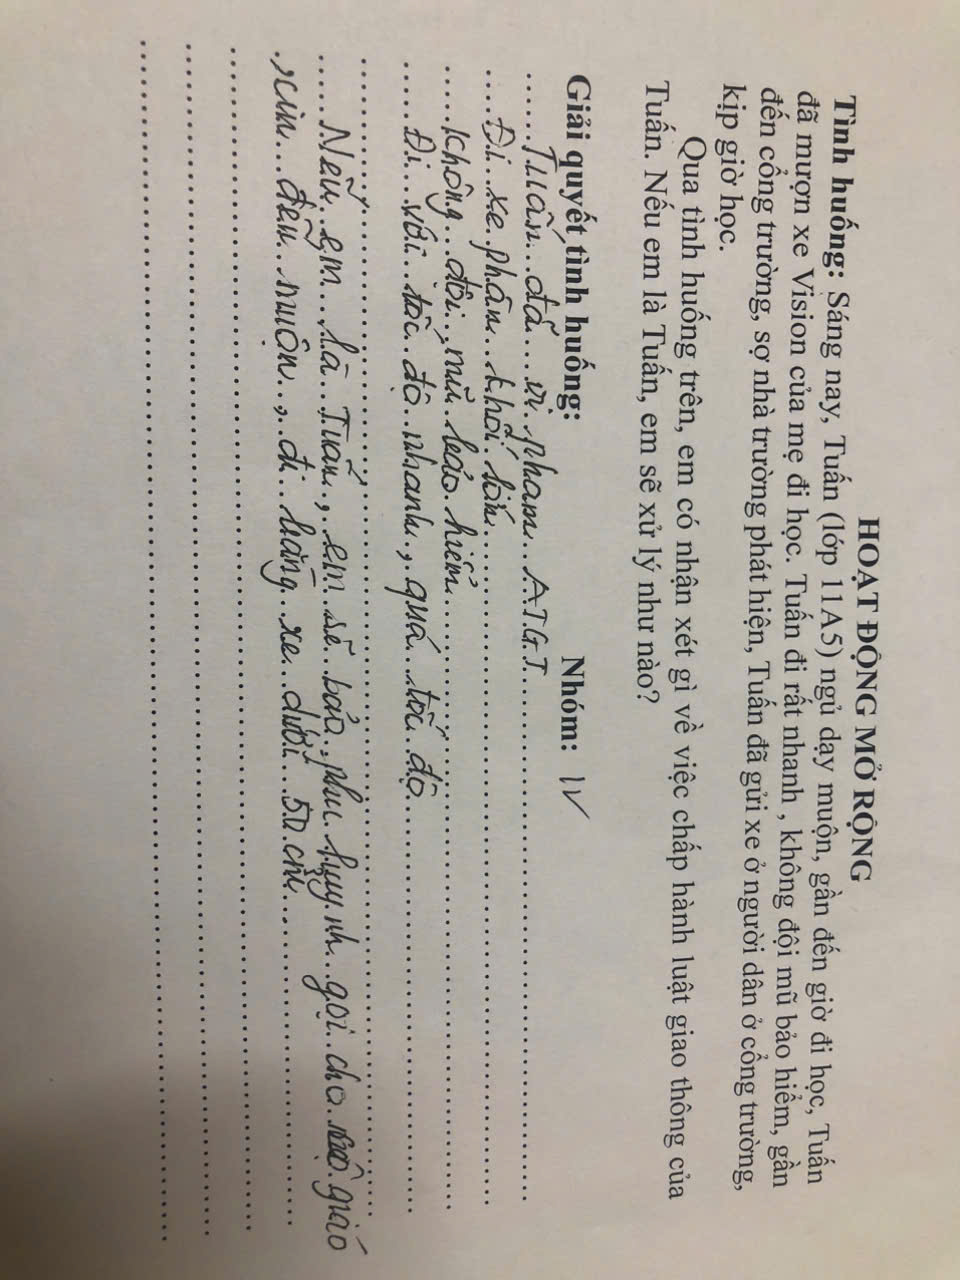 HOẠT ĐỘNG MỞ RỘNG
Tình huống: Sáng nay, Tuấn (lớp 11A5) ngủ dạy muộn, gần đến giờ đi học, Tuấn
đã mượn xe Vision của mẹ đi học. Tuấn đi rất nhanh , không đội mũ bảo hiểm, gần
đến cổng trường, sợ nhà trường phát hiện, Tuấn đã gửi xe ở người dân ở cổng trường,
kịp giờ học.
Qua tình huống trên, em có nhận xét gì về việc chấp hành luật giao thông của
Tuấn. Nếu em là Tuấn, em sẽ xử lý như nào?
Giải quyết tình huống: Nhóm: IV
Tuấn đã vi phạm ATGT
Đi xe phân khối lớn
không đội mũ bảo hiểm
Đi với tốc độ nhanh, quá tốc độ
Nếu em là Tuấn, em sẽ bảo phụ huynh gọi cho cô giáo
xin đến muộn, đi bằng xe dưới 50 cm